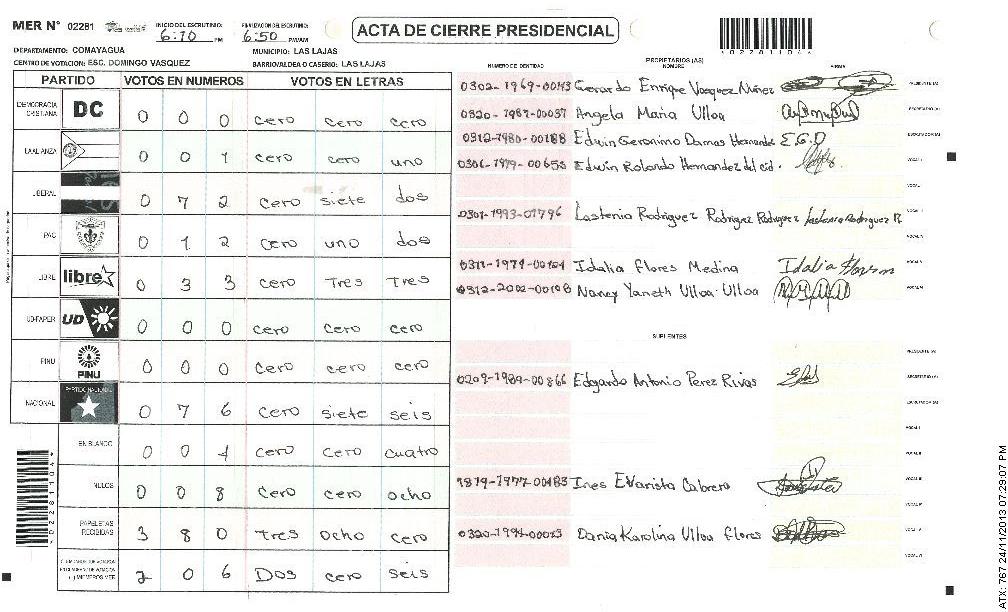 MER N° 02281 INICIO DEL ESCRUTINIO: 6:10 PM FINALIZACION DEL ESCRUTINIO: 6:50 PM/AM ACTA DE CIERRE PRESIDENCIAL
DEPARTAMENTO: COMAYAGUA MUNICIPIO: LAS LAJAS
CENTRO DE VOTACION: ESC. DOMINGO VASQUEZ BARRIO/ALDEA O CASERIO: LAS LAJAS
PARTIDO VOTOS EN NUMEROS VOTOS EN LETRAS
DEMOCRACIA CRISTIANA DC 0 0 0 cero cero cero
LA ALIANZA 0 0 1 cero cero uno
LIBERAL 0 7 2 cero siete dos
PAC 0 1 2 cero uno dos
LIBRE libre 0 3 3 cero Tres Tres
UD-FAPER UD 0 0 0 cero cero cero
PINU PINU 0 0 0 cero cero cero
NACIONAL PARTIDO NACIONAL 0 7 6 cero siete seis
EN BLANCO 0 0 4 cero cero cuatro
NULOS 0 0 8 cero cero ocho
PAPELETAS RECIBIDAS 3 8 0 Tres ocho cero
(-) MIEMBROS MER 2 0 6 Dos cero seis
NUMERO DE IDENTIDAD PROPIETARIOS (AS) NOMBRE FIRMA
0302-1969-00143 Gerardo Enrique Vasquez Nuñez PRESIDENTE (A)
0320-1987-00037 Angela Maria Ulloa SECRETARIO (A)
0312-1980-00188 Edwin Geronimo Damas Hernandez E.G.D ESCRUTADOR (A)
0306-1979-00653 Edwin Rolando Hernandez del cid. VOCAL I
VOCAL II
0301-1993-01796 Lastenia Rodriguez Rodriguez Rodriguez Lastenia Rodriguez R. VOCAL III
VOCAL IV
0311-1979-00104 Idalia Flores Medina Idalia Flores m VOCAL V
0312-2002-00108 Nancy Yaneth Ulloa Ulloa VOCAL VI
SUPLENTES
PRESIDENTE (A)
0209-1989-00866 Edgardo Antonio Perez Rivas SECRETARIO (A)
ESCRUTADOR (A)
VOCAL I
VOCAL II
1819-1977-00183 Ines Evarista Cabrera VOCAL III
VOCAL IV
0320-1994-00025 Dania Karolina Ulloa Flores VOCAL V
VOCAL VI
1022811044
1022811044
ATX: 767 24/11/2013 07:29:07 PM